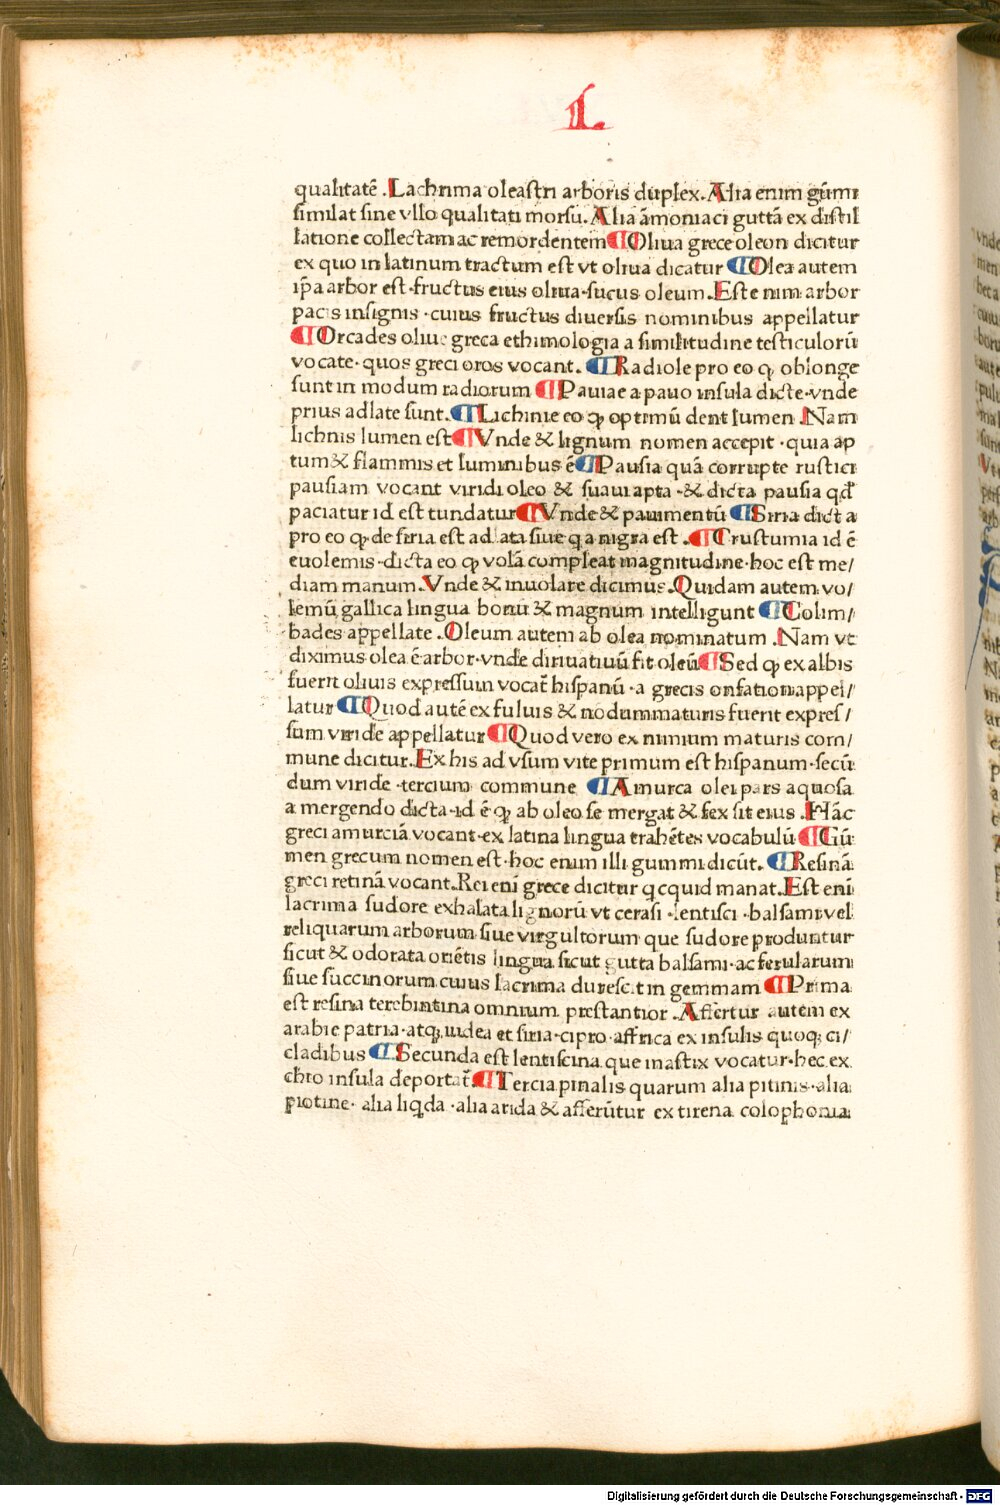 L.
qualitatē .Lachrima oleastri arboris duplex. Alia enim gūmi
similat sine vllo qualitati morsu. Alia āmoniaci guttā ex distil
latione collectam ac remordentem ¶ Oliua grece oleon dicitur
ex quo in latinum tractum est vt oliua dicatur ¶ Olea autem
ip̄a arbor est·fructus eius oliua·sucus oleum. Est enim arbor
pacis insignis ·cuius fructus diuersis nominibus appellatur
¶ Orcades oliue greca ethimologia a similitudine testiculorū
vocate·quos greci oros vocant. ¶ Radiole pro eo ꝙ oblonge
sunt in modum radiorum ¶ Pauiae a pauo insula dicte·vnde
prius adlate sunt. ¶ Lichinie eo ꝙ optimū dent lumen .Nam
lichnis lumen est ¶ Vnde & lignum nomen accepit ·quia ap
tum & flammis et luminibus ē ¶ Pausia quā corrupte rustici
pausiam vocant viridi oleo & suaui apta ·& dicta pausia qd̄
paciatur id est tundatur ¶ Vnde & pauimentū ¶ Siria dicta
pro eo ꝙ de siria est adlata siue q a nigra est . ¶ Crustumia id ē
euolemis ·dicta eo ꝙ volā compleat magnitudine·hoc est me/
diam manum. Vnde & inuolare dicimus .Quidam autem vo/
lemū gallica lingua bonū & magnum intelligunt ¶ Colim/
bades appellate .Oleum autem ab olea nominatum .Nam vt
diximus olea ē arbor·vnde diriuatiuū fit oleū ¶ Sed ꝙ ex albis
fuerit oliuis expressum vocat̄ hispanū ·a grecis onfation appel/
latur ¶ Quod autē ex fuluis & nodum maturis fuerit expres/
sum viride appellatur ¶ Quod vero ex nimium maturis com/
mune dicitur. Ex his ad vsum vite primum est hispanum·secū
dum viride ·tercium commune ¶ Amurca olei pars aquosa
a mergendo dicta·id ē ꝙ ab oleo se mergat & fex sit eius .Hāc
greci amurciā vocant·ex latina lingua trahētes vocabulū ¶ Gū
men grecum nomen est·hoc enim illi gummi dicūt. ¶ Resinā
greci retinā vocant .Rei eni grece dicitur qcquid manat .Est eni
lacrima sudore exhalata lignorū vt cerasi ·lentisci ·balsami vel
reliquarum arborum siue virgultorum que sudore produntur
sicut & odorata oriētis lingua sicut gutta balsami·ac ferularum
siue succinorum cuius lacrima durescit in gemmam ¶ Prima
est resina terebintina omnium prestantior .Affertur autem ex
arabie patria·atqꝫ iudea et siria·cipro·affrica ex insulis quoqꝫ ci/
cladibus ¶ Secunda est lentiscina que mastix vocatur·hec ex
chio insula deportat̄. ¶ Tercia pinalis quarum alia pitinis·alia
piotine· alia liqda ·alia arida & afferūtur ex tirena colophonia
Digitalisierung gefördert durch die Deutsche Forschungsgemeinschaft - DFG